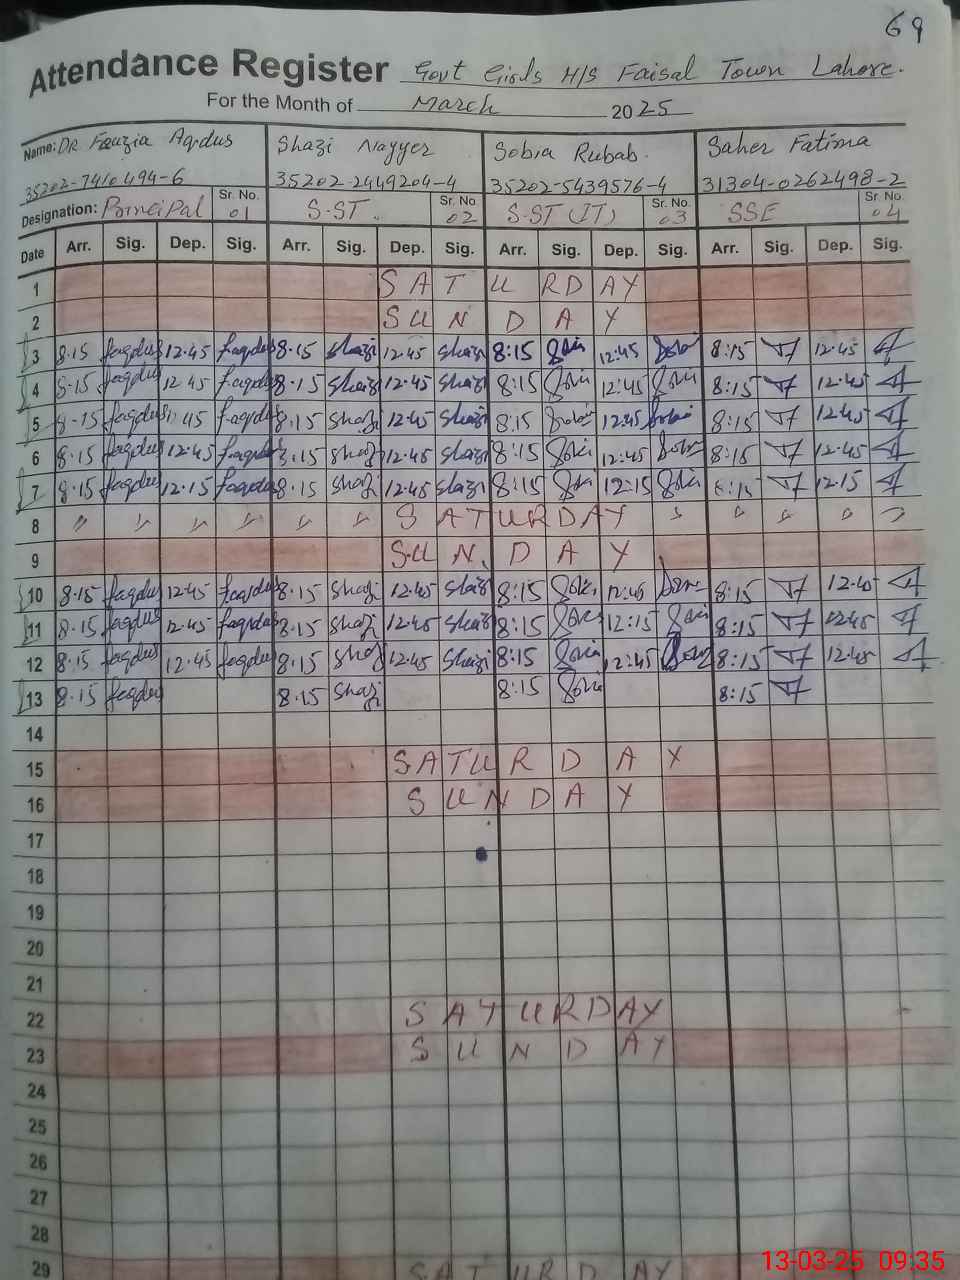 69
Attendance Register Govt Girls H/S Faisal Town Lahore.
For the Month of March 2025
Name: DR Fauzia Aqdus Shazi Nayyer Sobia Rubab. Saher Fatima
35202-7410494-6 35202-2449204-4 35202-5439576-4 31304-0262498-2
Designation: Principal Sr. No. 01 S-ST. Sr. No. 02 S-ST (IT) Sr. No. 03 SSE Sr. No. 04
Date Arr. Sig. Dep. Sig. Arr. Sig. Dep. Sig. Arr. Sig. Dep. Sig. Arr. Sig. Dep. Sig.
1 SATURDAY
2 SUNDAY
3 8.15 faqdus 12.45 faqdus 8.15 shazi 12.45 shazi 8:15 12:45 8:15 12.45
4 8.15 faqdus 12 45 faqdus 8.15 shazi 12.45 shazi 8:15 12:45 8:15 12.45
5 8.15 faqdus faqdus 8.15 shazi 12.45 shazi 8.15 12:45 8:15 12.45
6 8.15 faqdus 12.45 faqdus 8.15 shazi 12.45 shazi 8:15 12:45 8:15 12.45
7 8.15 faqdus 12.15 faqdus 8.15 shazi 12.45 shazi 8:15 12:15 8:15 12.15
8 SATURDAY
9 SUN DAY
10 8.15 faqdus 12.45 faqdus 8.15 shazi 12.45 shazi 8:15 12:45 8:15
11 8.15 faqdus 12.45 faqdus 8.15 shazi 12.45 shazi 8:15 12:15 8:15 12.45
12 8.15 faqdus 12.45 faqdus 8.15 shazi 12.45 shazi 8:15 12:45 8:15 12.45
13 8.15 faqdus 8.15 shazi 8:15 8:15
14
15 SATURDAY
16 SUNDAY
17
18
19
20
21
22 SATURDAY
23 SUNDAY
24
25
26
27
28
29 SATURDAY
13-03-25 09:35